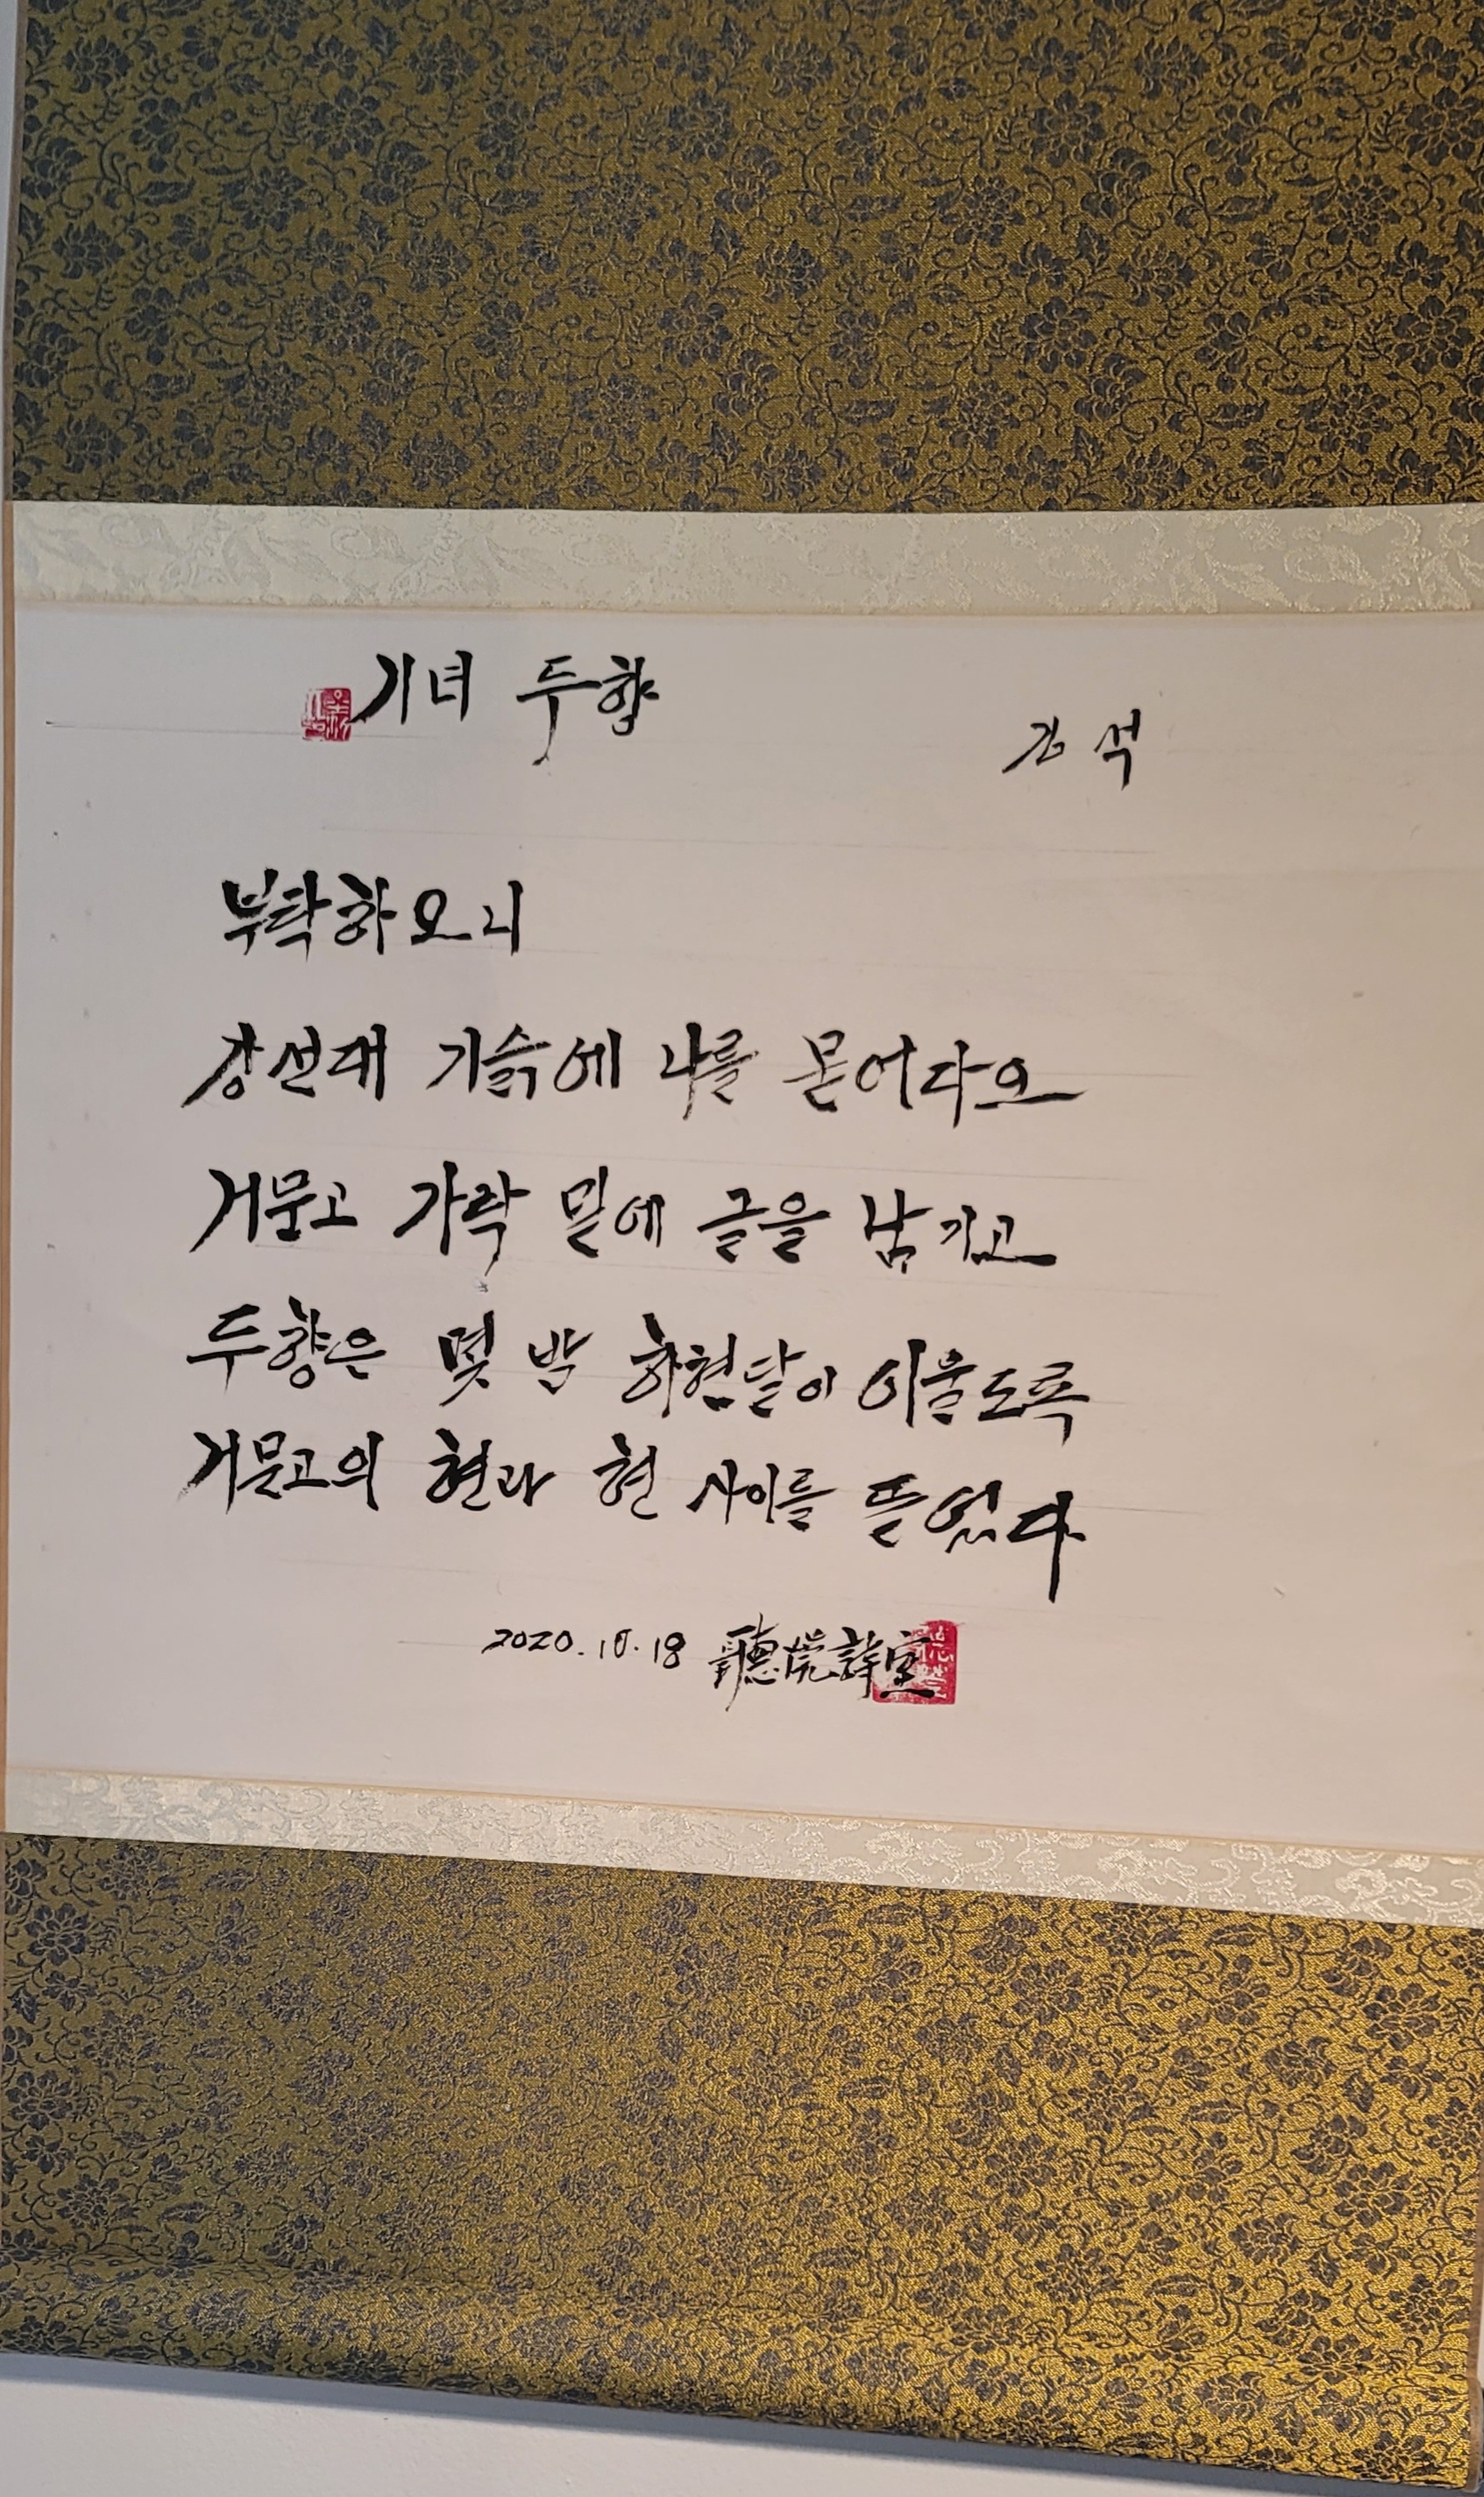 기녀 두향
김 석
부탁하오니
강선대 기슭에 나를 묻어다오
거문고 가락 밑에 글을 남기고
두향은 몇 밤 하현달이 이울도록
거문고의 현과 현 사이를 뜯었다
2020.10.18 聽 詩室